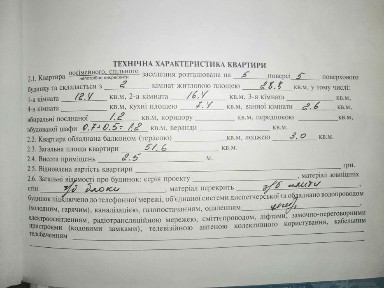 ТЕХНІЧНА ХАРАКТЕРИСТИКА КВАРТИРИ
2.1. Квартира посімейного, спільного заселення розташована на 5 поверсі 5 поверхового
будинку та складається з 2 кімнат житловою площею 28.8 кв.м, у тому числі:
1-а кімната 12.4 кв.м, 2-а кімната 16.4 кв.м, 3-я кімната кв.м,
4-а кімната кв.м, кухні площею 7.4 кв.м, ванної кімнати 2.6 кв.м,
вбиральні поєднаної 1.2 кв.м, коридору кв.м, передпокою кв.м,
вбудовані шафи 0.7+0.5=1.2 кв.м, веранди кв.м.
2.2. Квартира обладнана балконом (терасою) кв.м, лоджією 3.0 кв.м.
2.3. Загальна площа квартири 51.6 кв.м.
2.4. Висота приміщень 2.5 м.
2.5. Відновлена вартість квартири грн.
2.6. Загальні відомості про будинок: серія проекту , матеріал зовнішніх
стін з/б блоки , матеріал перекриття з/б плити ,
будинок підключено до телефонної мережі, обʼєднаної системи диспетчерської та обладнано водопроводом
(холодним, гарячим), каналізацією, газопостачанням, опаленням
електроосвітленням, радіотрансляційною мережею, сміттєпроводом, ліфтами, замочно-переговорними
пристроями (кодовими замками), телевізійною антеною колективного користування, кабельним
телебаченням